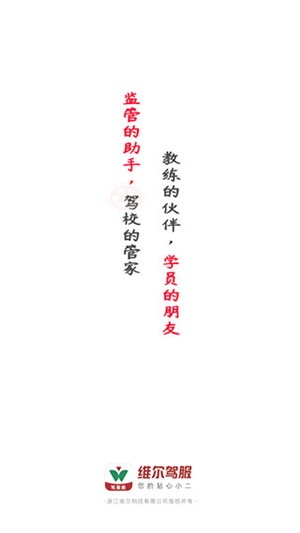 监管的助手，驾校的管家
教练的伙伴，学员的朋友
维尔驾服
您的贴心小二
·浙江维尔科技有限公司版权所有·